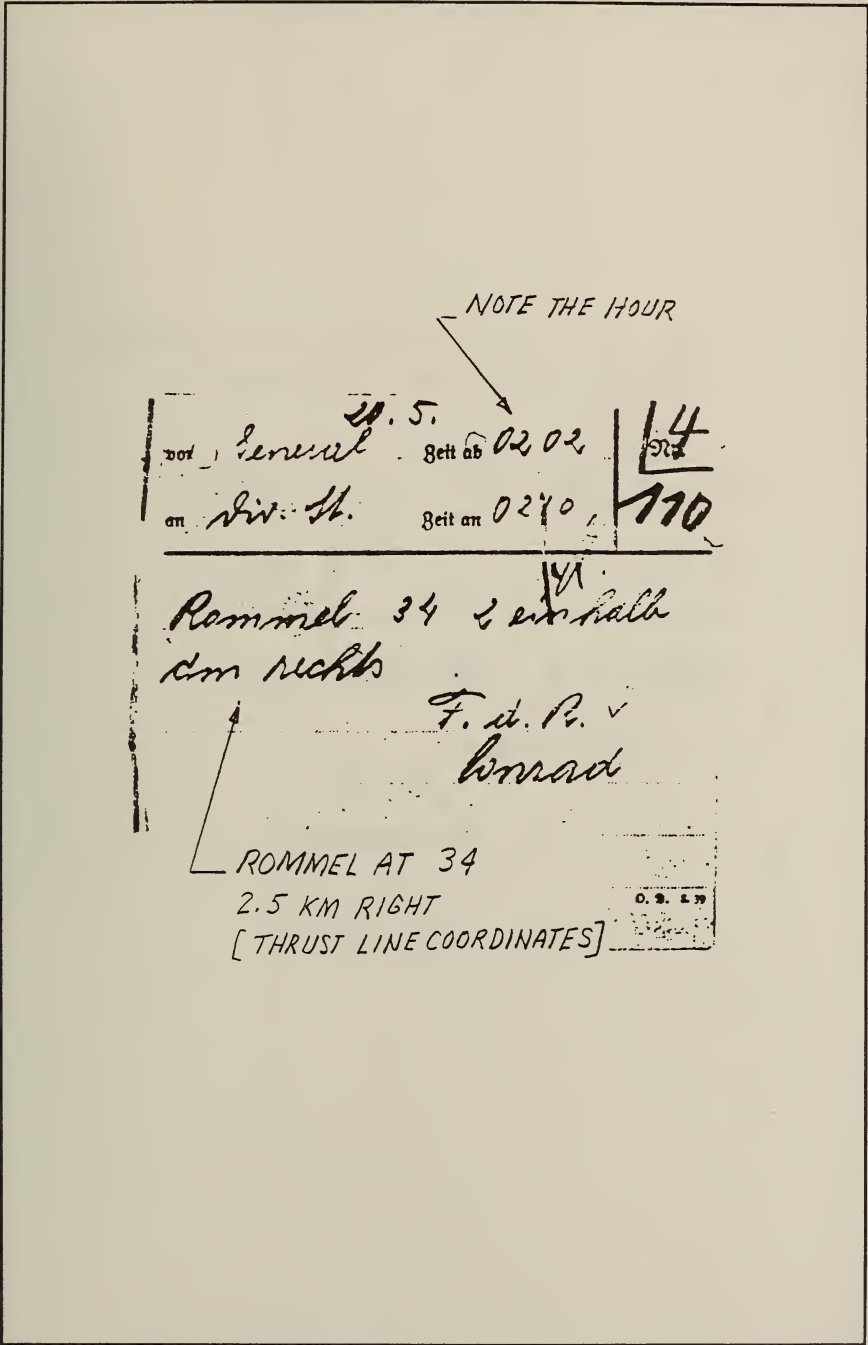 NOTE THE HOUR
20. 5.
von General Zeit ab 0202 Nr. 4
an Div. St. Zeit an 0210 110
Rommel 34 2 einhalb
km rechts
F. d. R.
Conrad
ROMMEL AT 34
2.5 KM RIGHT
[THRUST LINE COORDINATES]